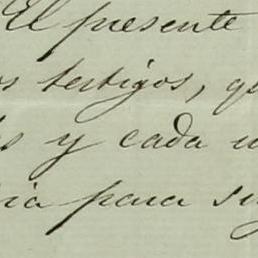 El presente
os testigos, q
s y cada u
ia para su